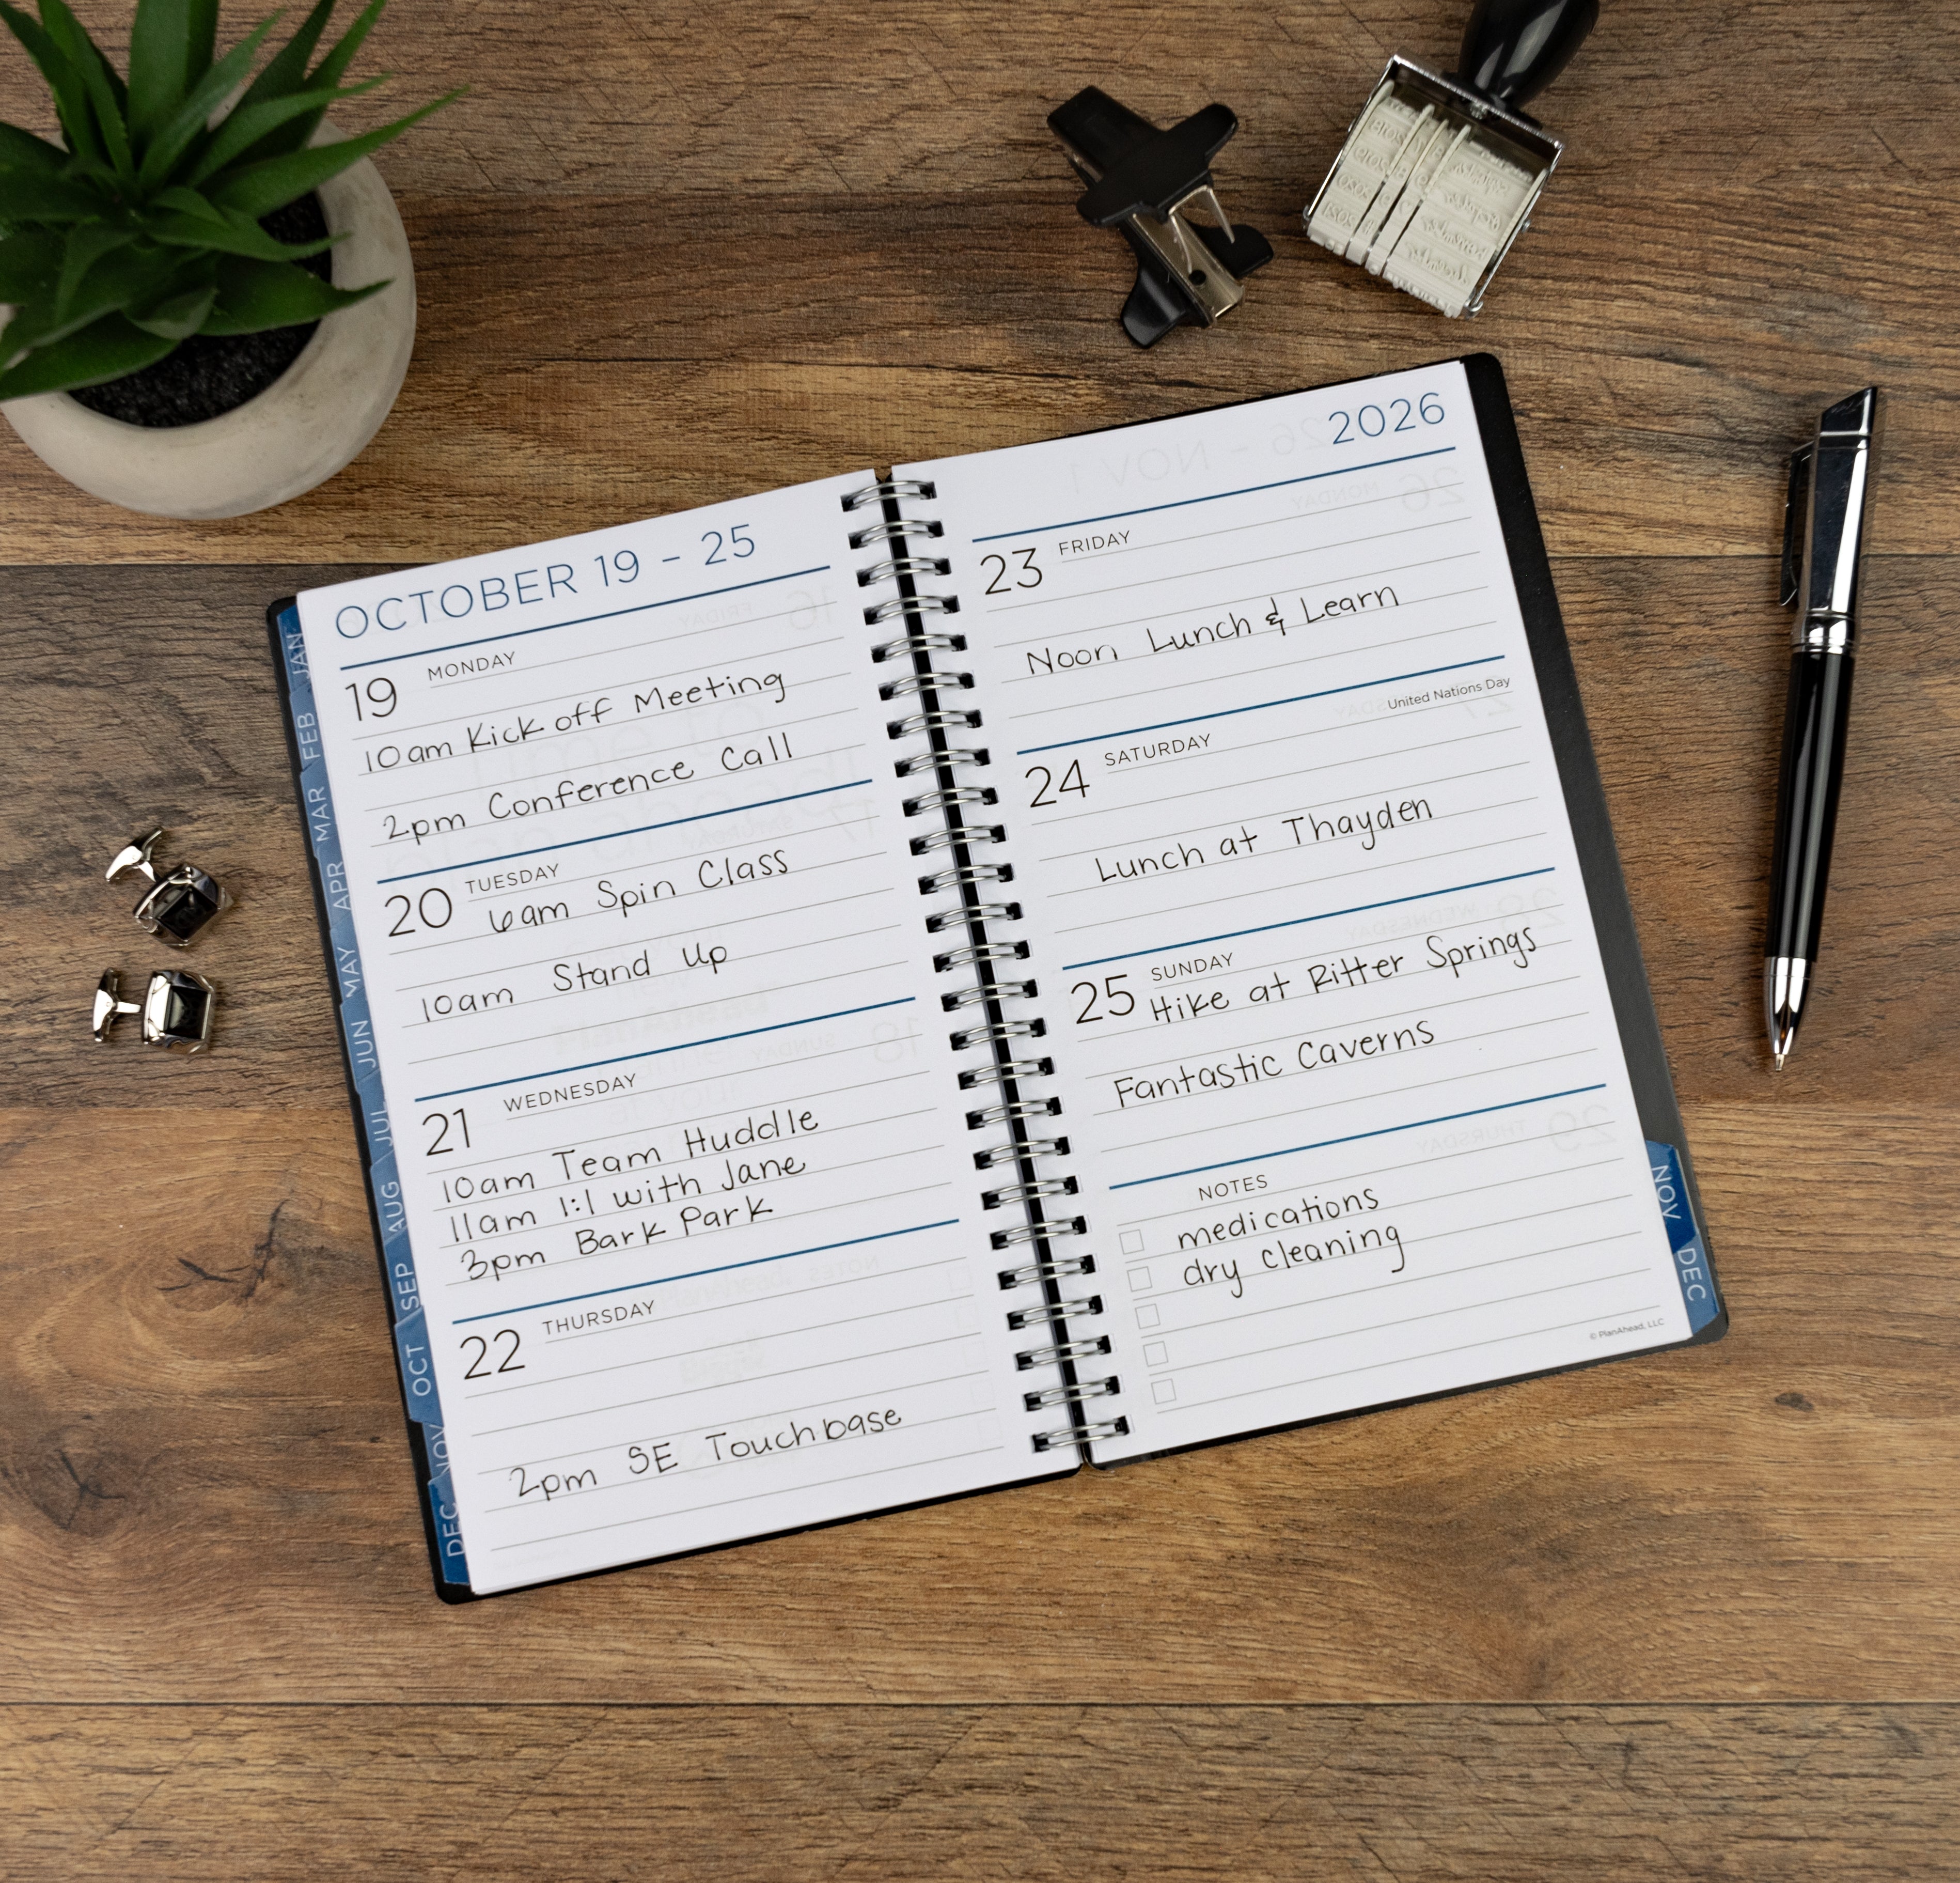 OCTOBER 19 – 25
19 MONDAY
10am Kick off Meeting
2pm Conference Call
20 TUESDAY
6am Spin Class
10am Stand Up
21 WEDNESDAY
10am Team Huddle
11am 1:1 with Jane
3pm Bark Park
22 THURSDAY
2pm SE Touchbase
2026
23 FRIDAY
Noon Lunch & Learn
United Nations Day
24 SATURDAY
Lunch at Thayden
25 SUNDAY
Hike at Ritter Springs
Fantastic Caverns
NOTES
medications
dry cleaning
© PlanAhead, LLC
JAN
FEB
MAR
APR
MAY
JUN
JUL
AUG
SEP
OCT
NOV
DEC
NOV
DEC